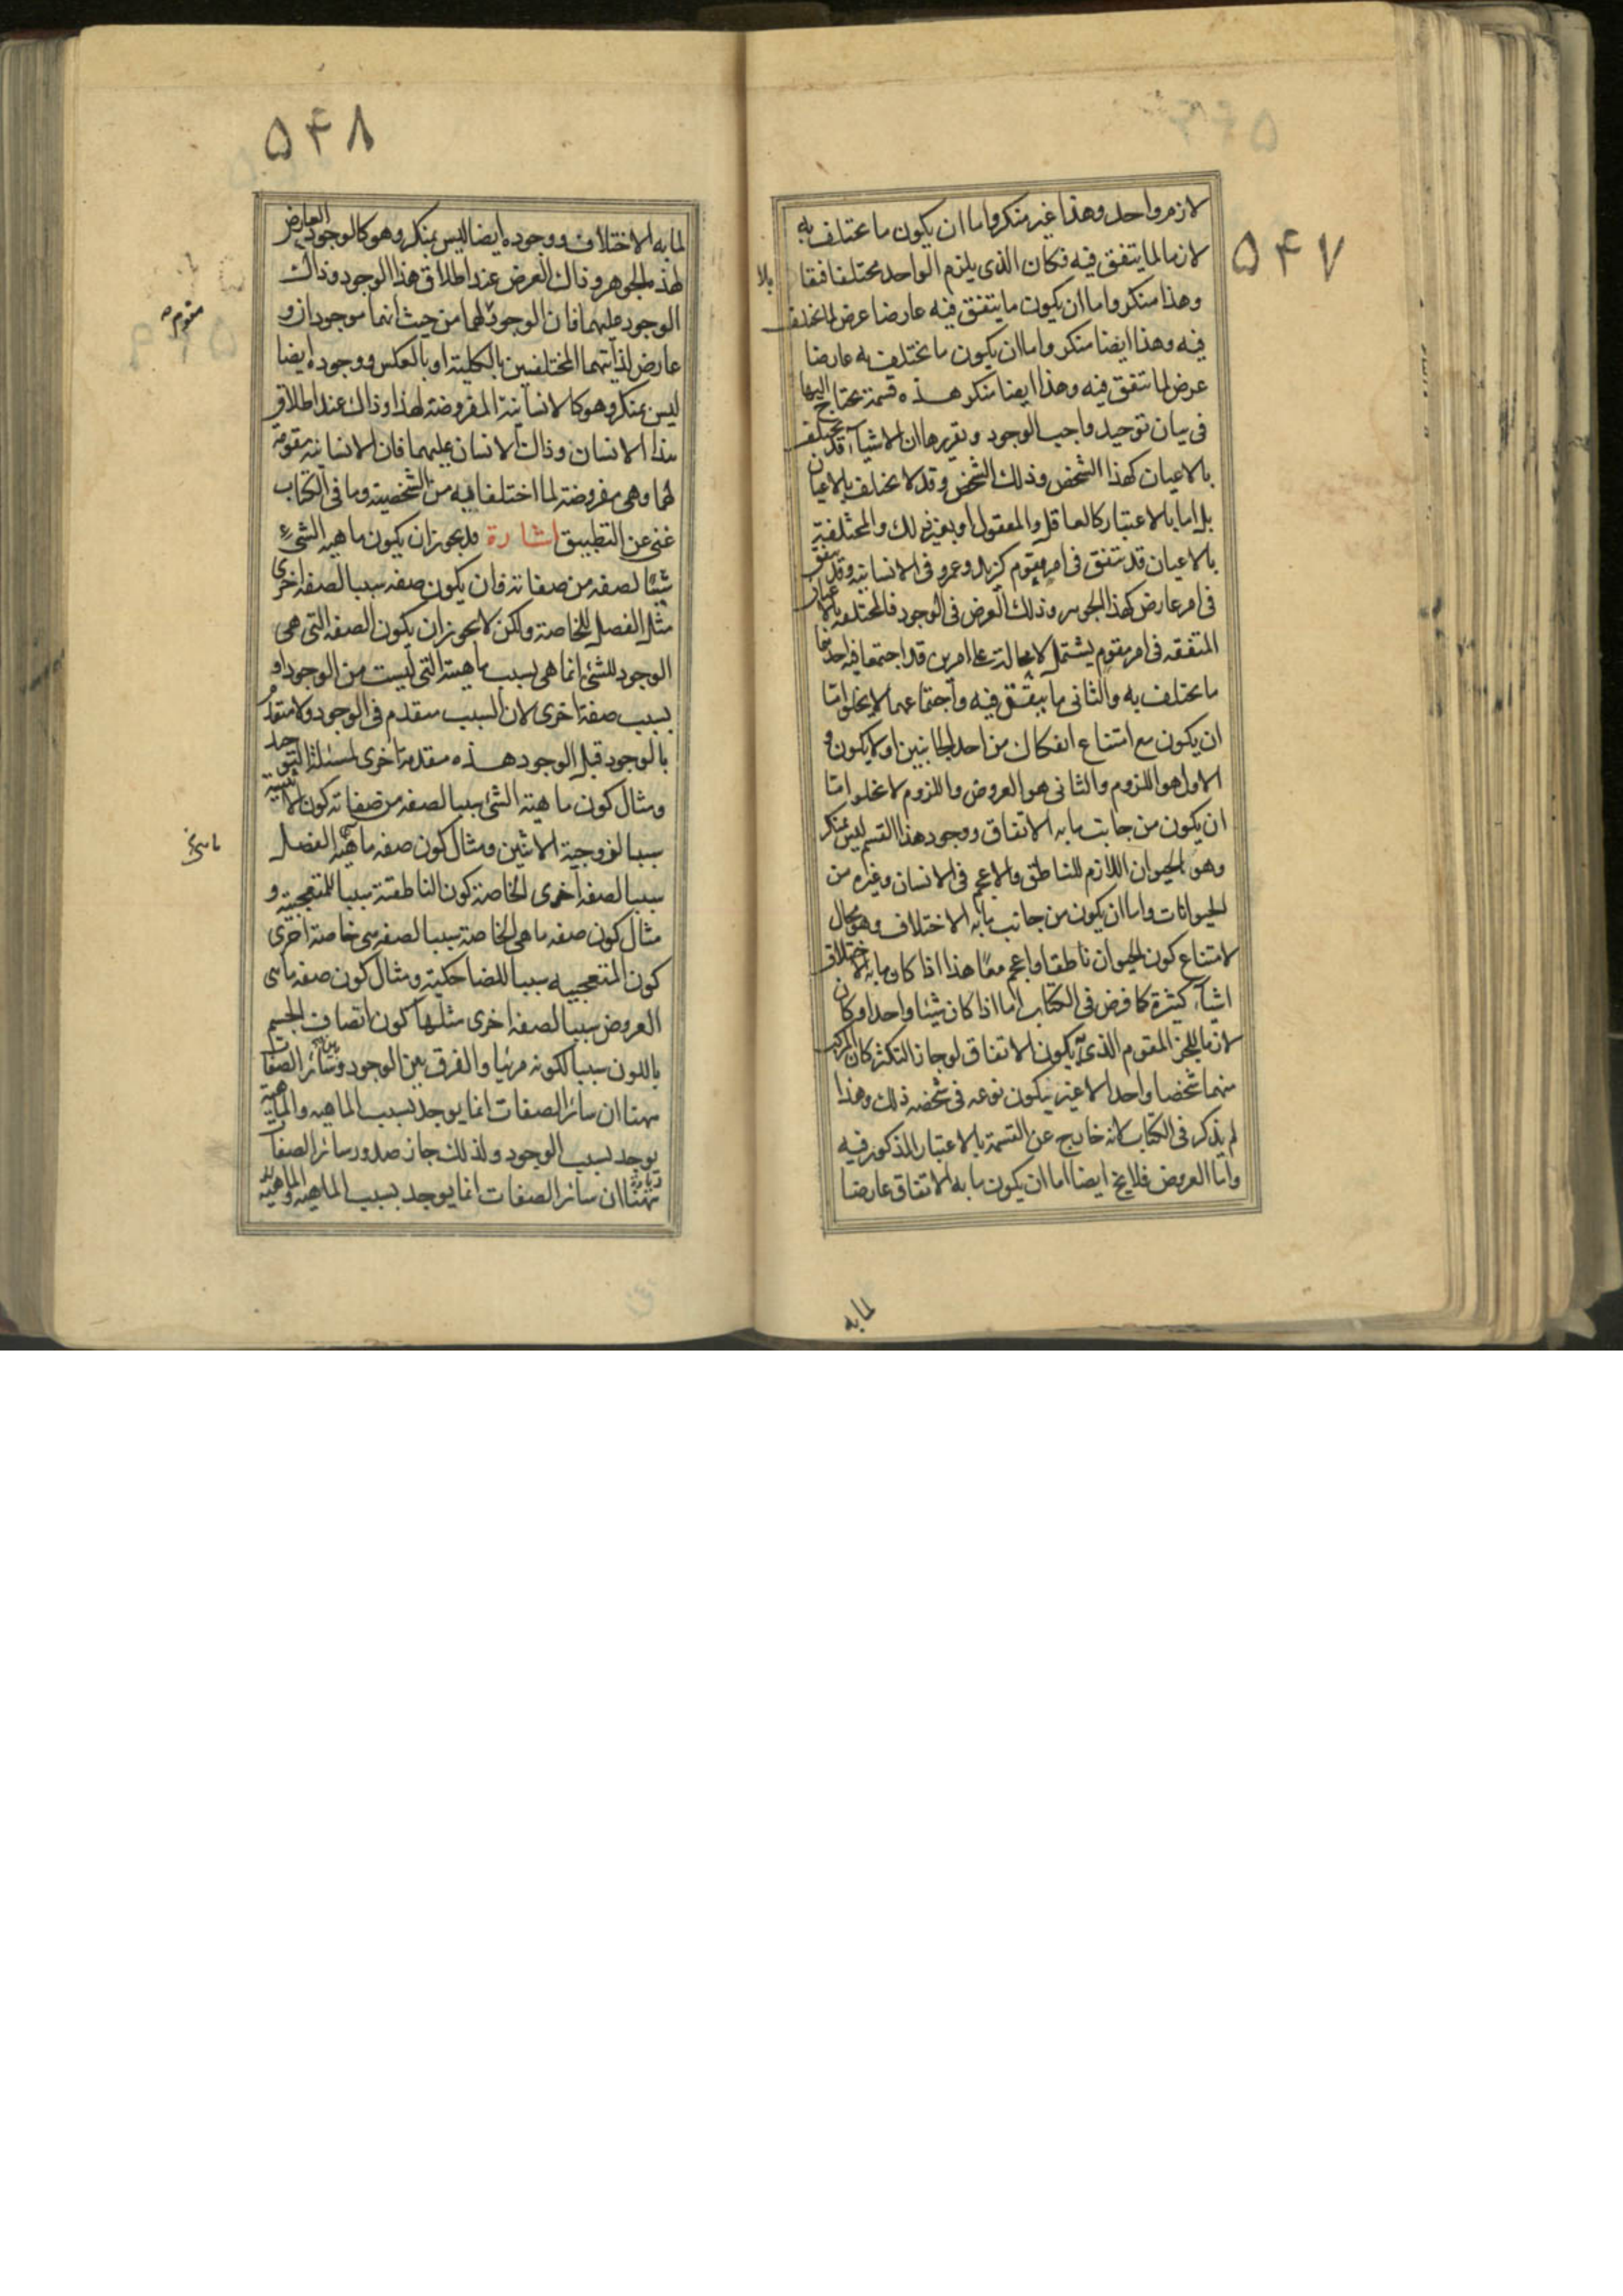 ۵۴۷
لازم واحد وهذا غير منكر واما ان يكون ما يختلف به
لازما لما يتفق فيه فكان الذى يلزم الواحد مختلفا متقا
بلا
وهذا منكر واما ان يكون ما يتفق فيه عارضا عرض لما يختلف
فيه وهذا ايضا منكر واما ان يكون ما يختلف به عارضا
عرض لما يتفق فيه وهذا ايضا منكر هذه قسمة يحتاج اليها
فى بيان توحيد واجب الوجود و تقريرها ان الاشيآء قد يختلف
بالاعيان كهذا الشخص وذلك الشخص وقد لا يختلف بالاعيان
بل اما بالاعتبار كالعاقل والمعقول او بغير ذلك والمختلفة
بالاعيان قد يتفق فى امر مقوم كزيد وعمرو فى الانسانية وقد يتفق
فى امر عارض كهذا الجوهر وذلك العرض فى الوجود فالمختلفة بالاعيان
المتفقه فى امر مقوم يشتمل لا محالة على امرين قد اجتمعا فيه احدهما
ما يختلف به والثانى ما يتفق فيه واجتماعهما لا يخلو امّا
ان يكون مع امتناع انفكاك من احد الجانبين او لا يكون و
الاول هو اللزوم والثانى هو العروض واللزوم لا يخلو امّا
ان يكون من جانب ما به الاتفاق ووجود هذا القسم ليس بمنكر
وهو الحيوان اللازم للناطق والاعجم فى الانسان وغيره من
الحيوانات واما ان يكون من جانب ما به الاختلاف وهو محال
لامتناع كون الحيوان ناطقا واعجم معًا هذا اذا كان ما به الاختلاف
اشيآء كثيرة كما فرض فى الكتاب اما اذا كان شيئا واحدا وكان
لازما للجزء المقوم الذى به يكون الاتفاق لوجاز التكثر كان المركب
منهما شخصا واحدا لا غير يكون نوعه فى شخصه ذلك وهذا
لم يذكر فى الكتاب لانه خارج عن القسمة بالاعتبار المذكور فيه
وامّا العروض فلا يخ ايضا اما ان يكون ما به الاتفاق عارضا
لما به
۵۴۸
لما به الاختلاف ووجوده ايضا ليس بمنكر وهو كالوجود العارض
لهذ الجوهر وذلك العرض عند اطلاق هذا الوجود وذاك
الوجود عليهما فان الوجود لهما من حيث انهما موجودان و
مقوم
عارض لذاتيهما المختلفين بالكلية او بالعكس ووجوده ايضا
ليس بمنكر وهو كالانسانية المفروضة لهذا وذاك عند اطلاق
هذا الانسان وذاك الانسان عليهما فان الانسانية مقومة
لهما وهى مفروضة لما اختلفا فيه من الشخصية وما فى الكتاب
غنى عن التطبيق اشارة قد يجوز ان يكون ماهية الشىء
سببًا لصفه من صفاته وان يكون صفه سببا لصفه اخرى
مثل الفصل للخاصة ولكن لا يجوز ان يكون الصفه التى هى
الوجود للشئ انما هى بسبب ماهيته التى ليست من الوجود او
بسبب صفة اخرى لان السبب متقدم فى الوجود ولا متقدم
بالوجود قبل الوجود هذه مقدمة اخرى لمسئلة التوحيد
ومثال كون ماهية الشئ سببا لصفه من صفاته كون الاثنينية
سببا لزوجية الاثنين ومثال كون صفه ما هى الفصل
ما هى
سببا لصفه اخرى الخاصة كون الناطقة سببا للمتعجبية و
مثال كون صفه ما هى الخاصة سببا لصفه هى خاصة اخرى
كون المتعجبيه سببا للضاحكية ومثال كون صفه ما هى
العروض سببا لصفه اخرى مثلها كون اتصاف الجسم
باللون سببا لكونه مرئيا والفرق بين الوجود وسائر الصفات
ههنا ان سائر الصفات انما يوجد بسبب الماهيه والماهية
يوجد بسبب الوجود ولذلك جاز صدور سائر الصفات
ههنا ان سائر الصفات انما يوجد بسبب الماهيه والماهية